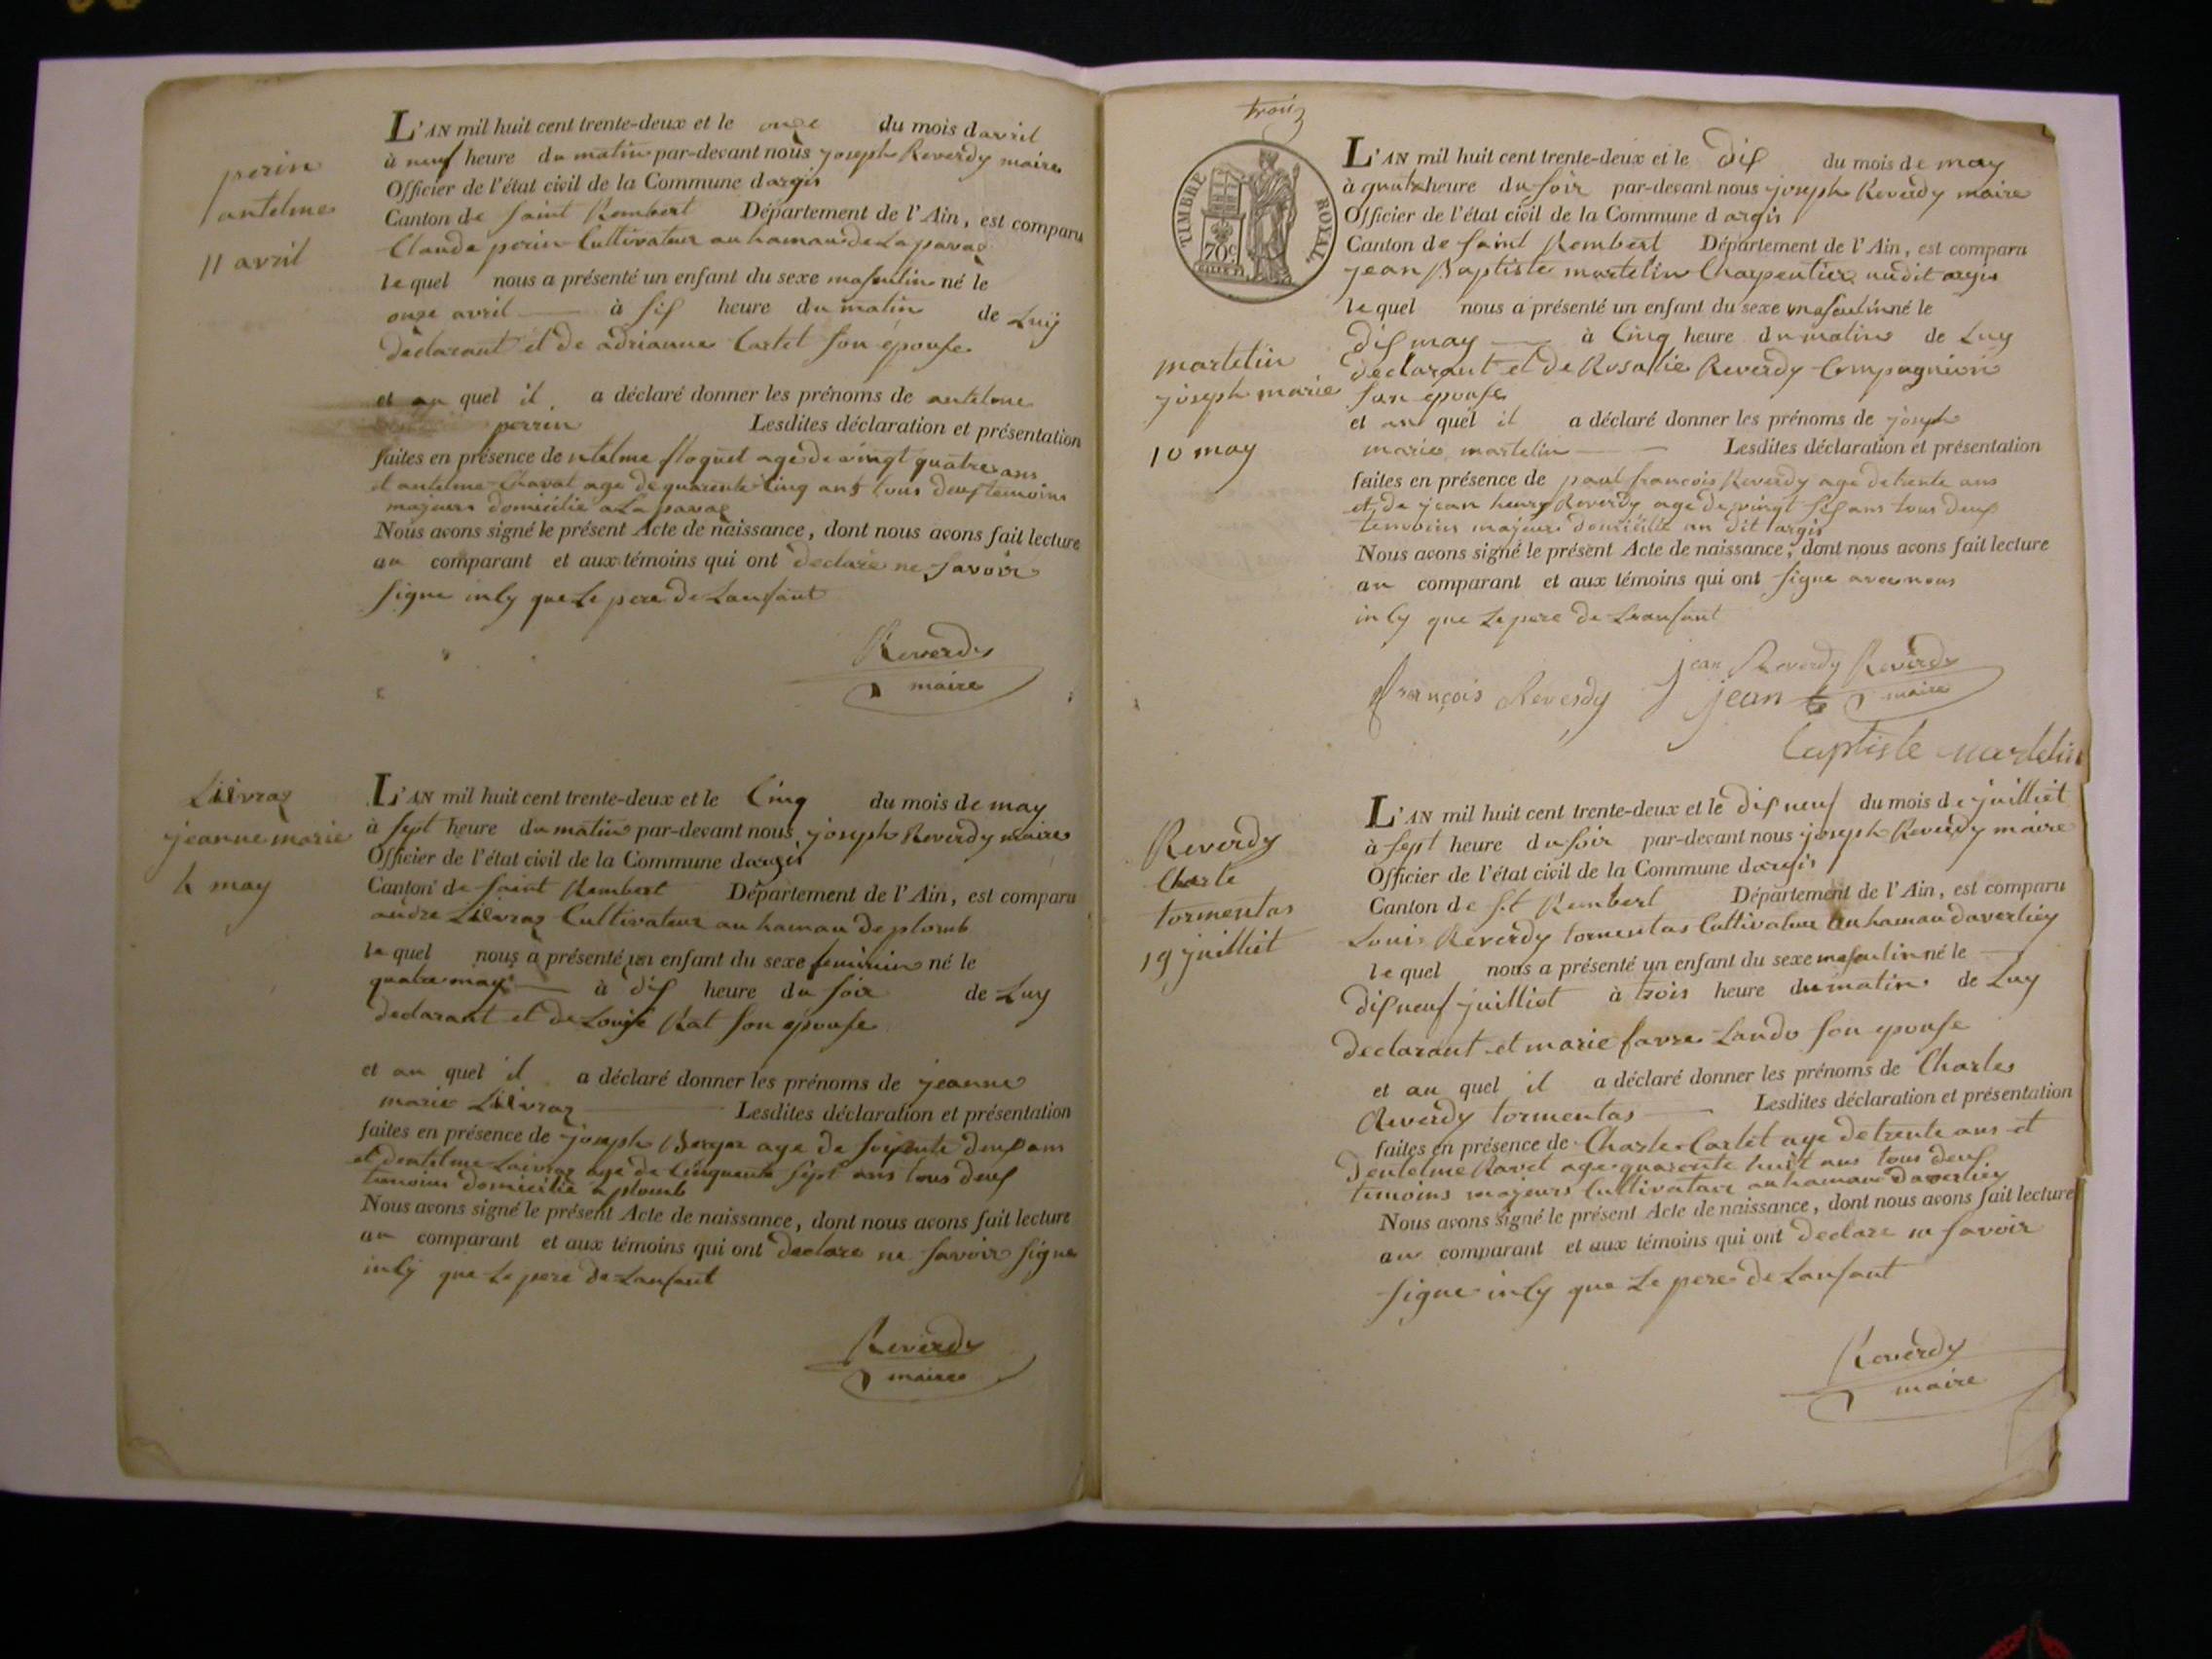 perin
antelme
11 avril
L'AN mil huit cent trente-deux et le onze du mois davril
à neuf heure du matin par-devant nous joseph Reverdy maire
Officier de l'état civil de la Commune dargis
Canton de saint Rembert Département de l'Ain, est comparu
Claude perin Cultivateur au hamau de La
le quel nous a présenté un enfant du sexe masculin né le
onze avril à six heure du matin de Luy
déclarant et de adrianne Cartet son épouse
et au quel il a déclaré donner les prénoms de antelme
perrin Lesdites déclaration et présentation
faites en présence de ntelme floquet age de vingt quatre ans
et antelme Chavat age de quarente Cinq ans tous deux temoins
majeurs domicilié a La
Nous avons signé le présent Acte de naissance, dont nous avons fait lecture
au comparant et aux témoins qui ont declaré ne savoir
signe incy que Le pere de Lanfant
Reverdy
maire
jeanne marie
4 may
L'AN mil huit cent trente-deux et le Cinq du mois de may
à sept heure du matin par-devant nous joseph Reverdy maire
Officier de l'état civil de la Commune dargis
Canton de saint Rembert Département de l'Ain, est comparu
andre Cultivateur au hamau de plomb
le quel nous a présenté un enfant du sexe feminin né le
quatre may à dix heure du soir de Luy
declarant et de Louise Rat son epouse
et au quel il a déclaré donner les prénoms de jeanne
marie Lesdites déclaration et présentation
faites en présence de joseph Berger age de soixente deux ans
et dentelme age de Cinquante sept ans tous deux
temoins domicilié a plomb
Nous avons signé le présent Acte de naissance, dont nous avons fait lecture
au comparant et aux témoins qui ont declare ne savoir signe
incy que Le pere de Lanfant
Reverdy
maire
trois
TIMBRE ROYAL
70c
L'AN mil huit cent trente-deux et le dix du mois de may
à quatre heure du soir par-devant nous joseph Reverdy maire
Officier de l'état civil de la Commune d argis
Canton de saint Rembert Département de l'Ain, est comparu
jean Baptiste martelin Charpentier audit argis
le quel nous a présenté un enfant du sexe masculin né le
dix may à Cinq heure du matin de Luy
declarant et de Rosalie Reverdy Compagnion
son epouse
et au quel il a déclaré donner les prénoms de joseph
marie martelin Lesdites déclaration et présentation
faites en présence de paul francois Reverdy age de trente ans
et de jean henry Reverdy age de vingt six ans tous deux
temoins majeurs domicilié au dit argis
Nous avons signé le présent Acte de naissance, dont nous avons fait lecture
au comparant et aux témoins qui ont signe avec nous
incy que Le pere de Lanfant
martelin
joseph marie
10 may
jean Reverdy Reverdy
françois Reverdy jean maire
baptiste martelin
Reverdy
Charle
tormentas
19 juilliet
L'AN mil huit cent trente-deux et le dix neuf du mois de juilliet
à sept heure du soir par-devant nous joseph Reverdy maire
Officier de l'état civil de la Commune dargis
Canton de s.t Rembert Département de l'Ain, est comparu
Louis Reverdy tormentas Cultivateur au hamau daverliey
le quel nous a présenté un enfant du sexe masculin né le
dix neuf juilliet à trois heure du matin de Luy
declarant et marie favre Lando son epouse
et au quel il a déclaré donner les prénoms de Charles
Reverdy tormentas Lesdites déclaration et présentation
faites en présence de Charle Cartet age de trente ans et
dentelme Ravet age quarente huit ans tous deux
temoins majeurs Cultivateur au hamau daverliey
Nous avons signé le présent Acte de naissance, dont nous avons fait lecture
au comparant et aux témoins qui ont declare ne savoir
signe incy que Le pere de Lanfant
Reverdy
maire